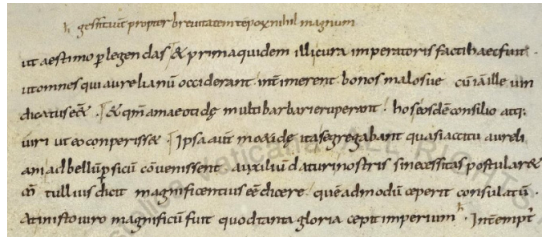 h gessit aut propter brevitatem tēporis nihil magnum
ut aestimo plegendas & prima quidem illi cura imperatoris facti haec fuit
ut omnes qui aurelianū occiderant interimerent bonos malosue cū iā ille uin
dicatus ēe & qm̄ a maeotide multi barbari eruperant hos eosdē consilio atq;
uiri ut eo conperisse Ipsa aūt maeotidae ita se gregabant quasi accitu aureli
ani ad bellū psicū conuenissent auxiliū daturi nostris si necessitas postulare&
m̄ tullius dicit magnificentius ēe dicere quēadmodū ceperit consulatū
At in isto uiro magnificū fuit quod tanta gloria cepit imperium Interempt